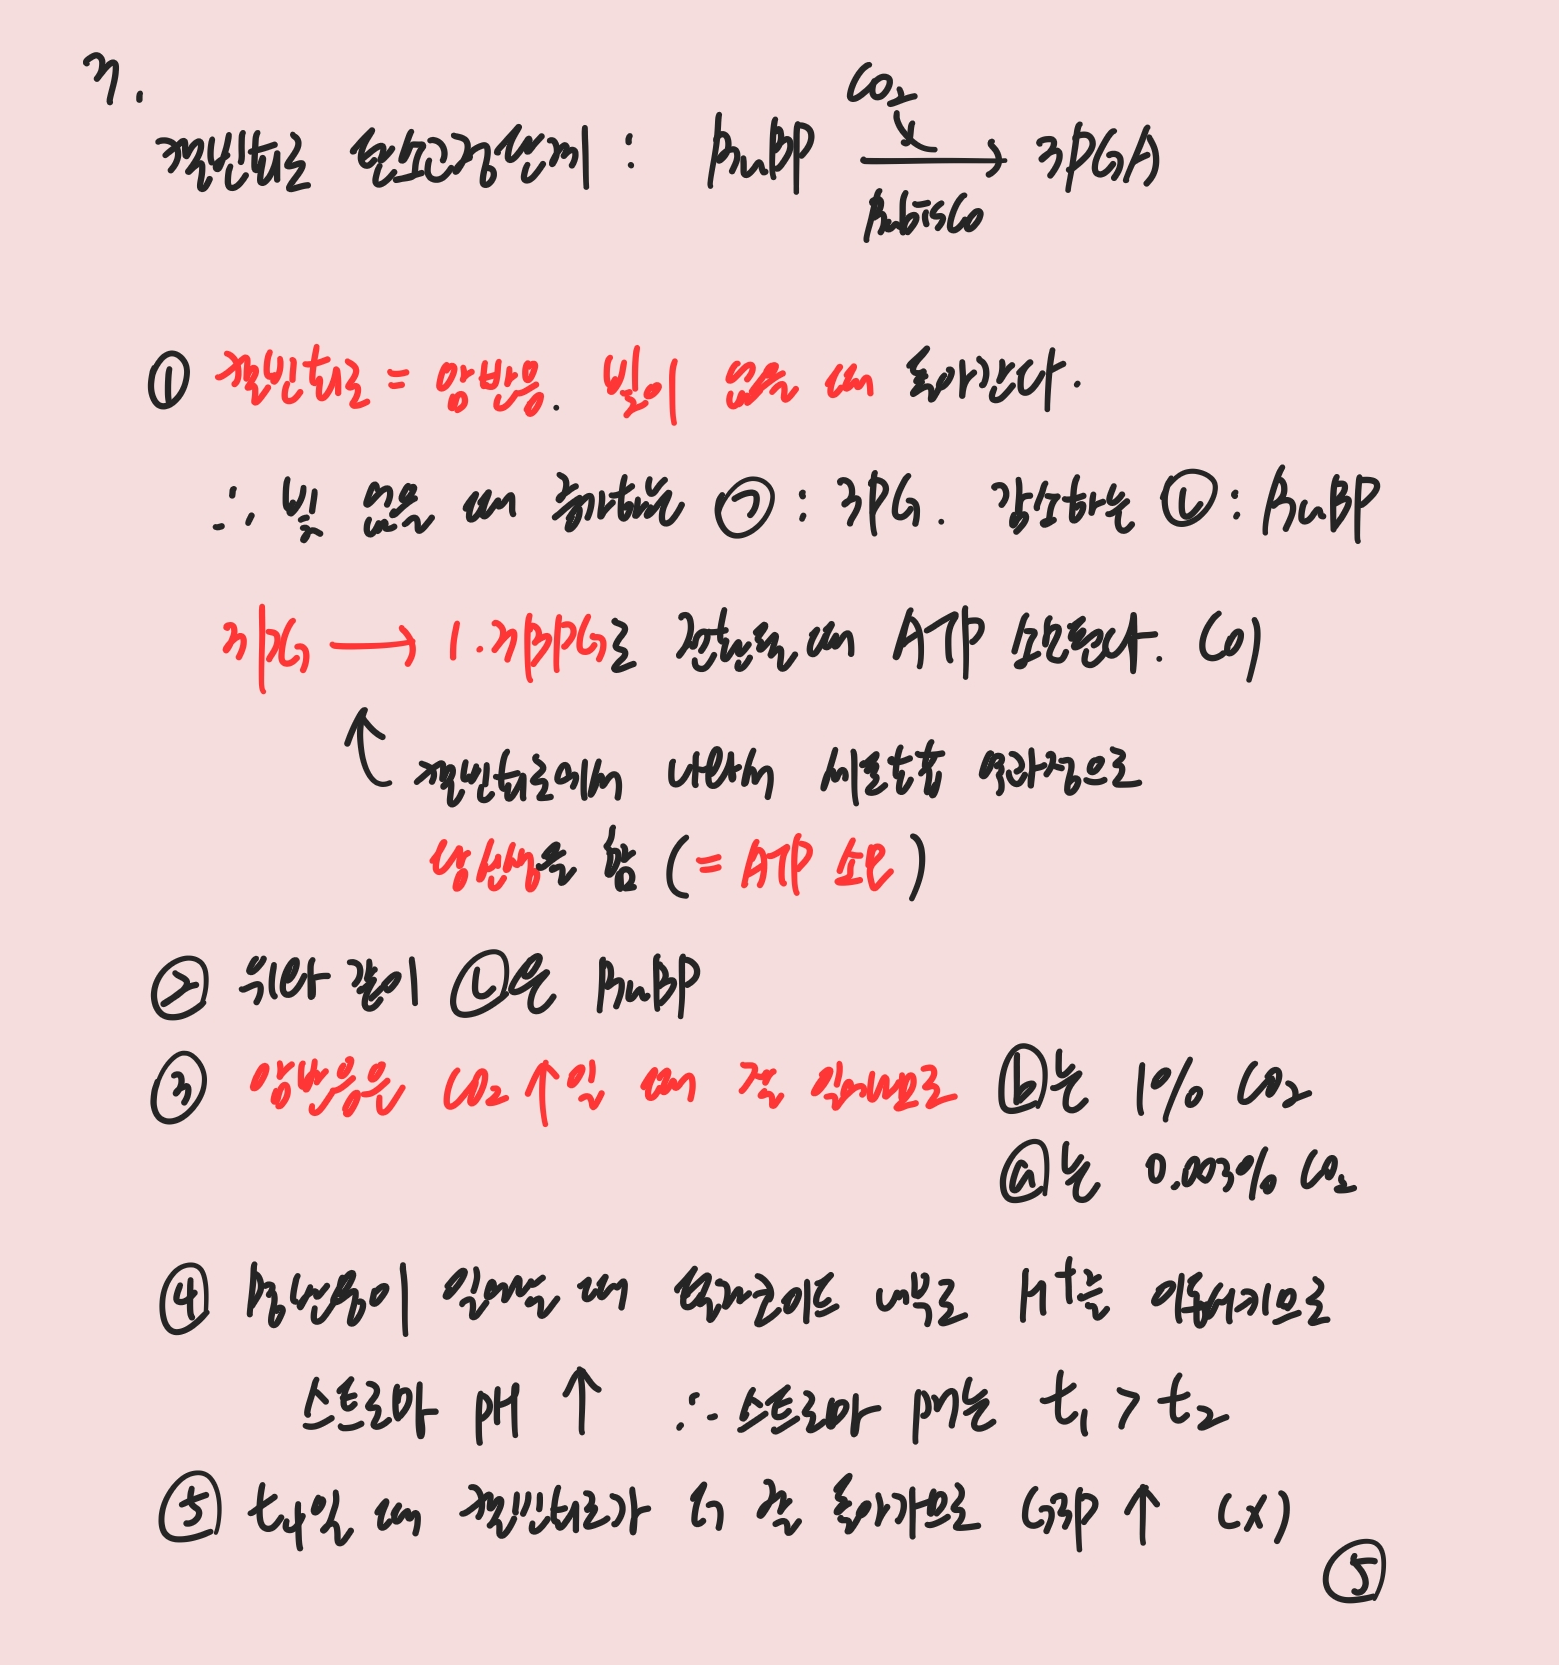 3.
CO₂
캘빈회로 탄소고정단계 : RuBP → 3PGA
Rubisco
① 캘빈회로 = 암반응. 빛이 없을 때 돌아간다.
∴ 빛 없을 때 증가하는 ㉠ : 3PG. 감소하는 ㉡ : RuBP
3PG → 1.3BPG로 전환될 때 ATP 소모된다. (O)
↑ 캘빈회로에서 나와서 세포호흡 역과정으로
당신생을 함 (= ATP 소모)
② 위와 같이 ㉡은 RuBP
③ 암반응은 CO₂↑일 때 잘 일어나므로 ⓑ는 1% CO₂
ⓐ는 0.003% CO₂
④ 명반응이 일어날 때 틸라코이드 내부로 H⁺를 이동시키므로
스트로마 pH ↑ ∴ 스트로마 pH는 t₁ > t₂
⑤ t₄일 때 캘빈회로가 더 잘 돌아가므로 G3P ↑ (X)
⑤